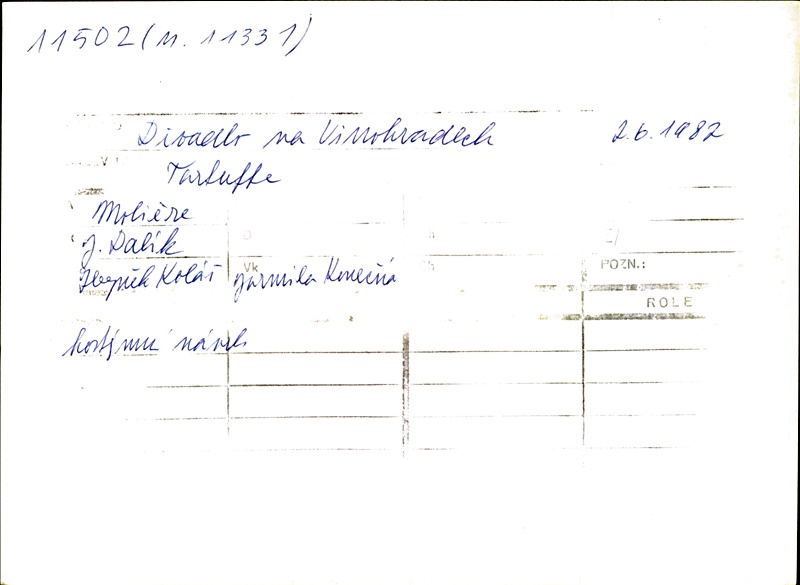 11502 (n. 11331)
Divadlo na Vinohradech 2.6.1982
V
Tartuffe
Molière
J. Dalík
Zbyněk Kolář Vk Jarmila Konečná POZN.:
ROLE
kostýmní návrh